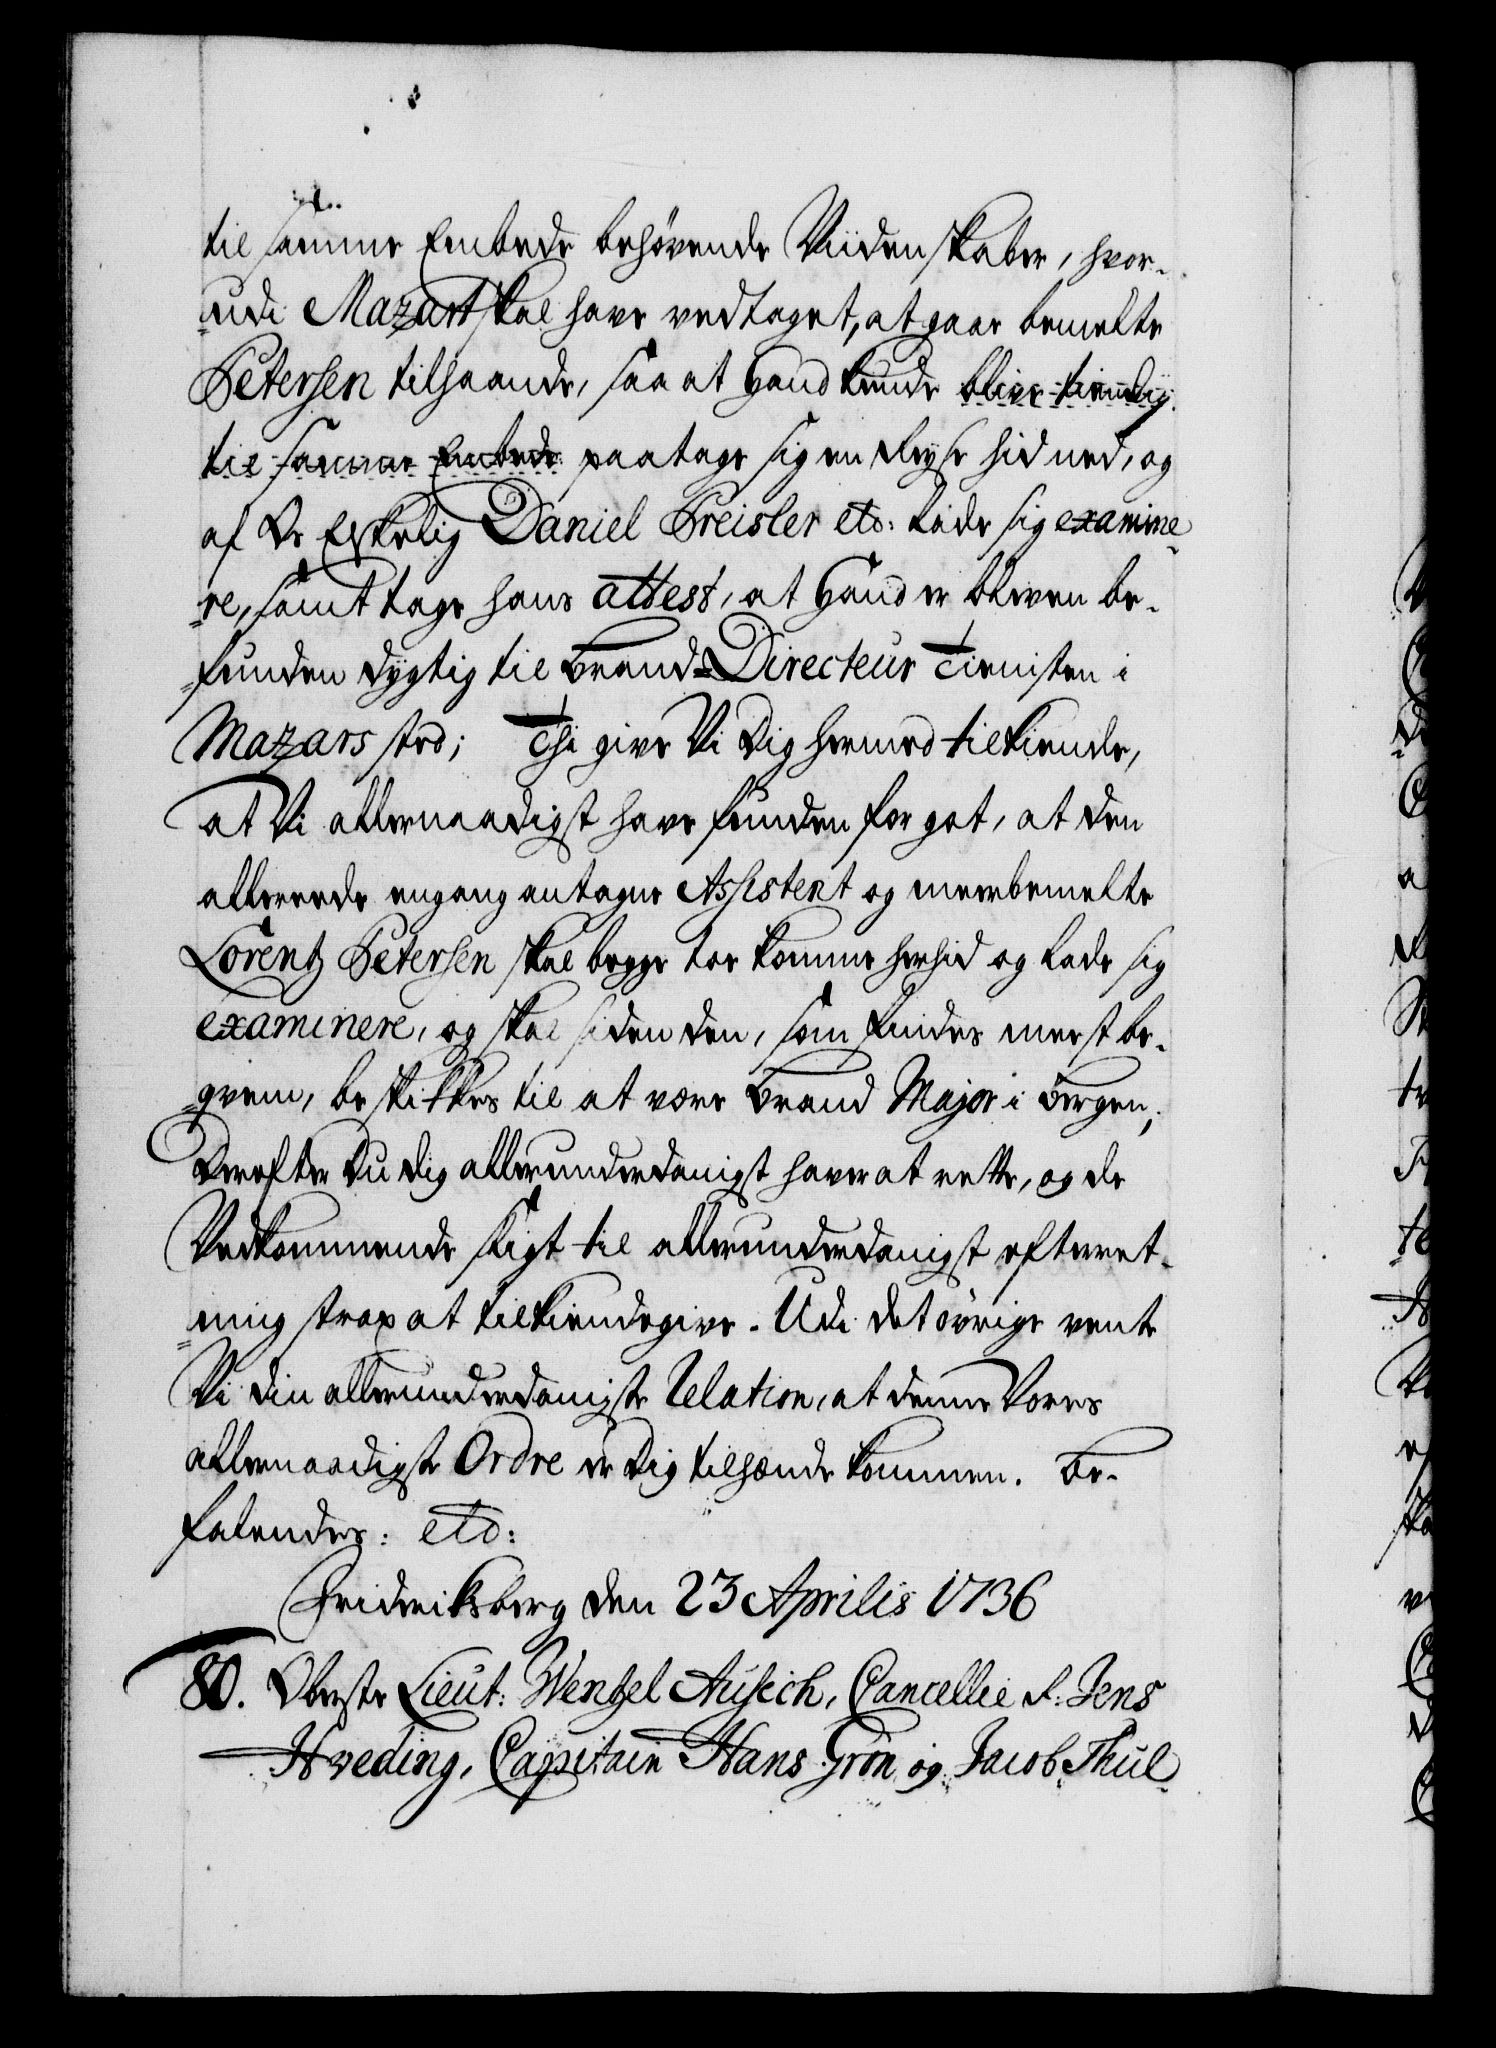 til samme Embede behøvende Viidenskaber, hvor-
udi Mazart skal have vedtaget, at gaae bemelte
Petersen tilhaande, saa at hand kunde blive kiendig
til samme Embede paatage sig en Reyse hid ned, og
af Os Elskelig Daniel Preisler etc: lade sig examine
re, samt tage hans attest, at hand er bleven be-
funden dygtig til Brand-Directeur Tienisten i
Mazars sted; Thi give Vi Dig hermed tilkiende,
at Vi allernaadigst have funden for got, at den
allereede engang antagne Assistent og meerbemelte
Lorentz Petersen skal begge toe komme herhid og lade sig
examinere, og skal siden den, som findes meest be-
qvem, beskikkes til at være Brand Major i Bergen;
Derefter Du dig allerunderdanigst haver at rette, og de
Vedkommende sligt til allerunderdanigst efterret-
ning strax at tilkiendegive. Udi det øvrige vente
Vi din allerunderdanigste Relation, at denne Vores
allernaadigste Ordre er dig tilhænde kommen. Be-
falendes: etc:
Friderichsberg den 23 Aprilis 1736
80. Oberste Lieut: Wentzel Ausich, Cancellie R: Jens
Hveding, Capitain Hans Grøn og Jacob Thul